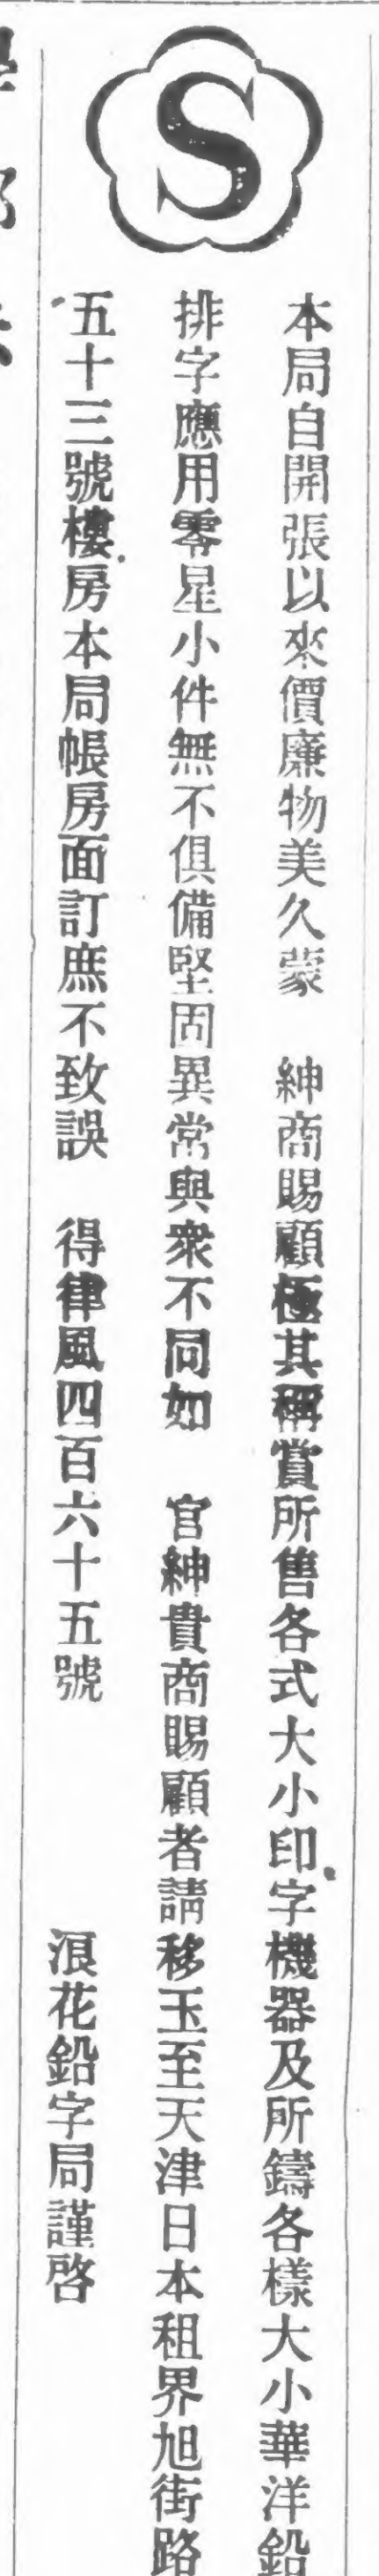 S
本局自開張以來價廉物美久蒙　紳商賜顧極其稱賞所售各式大小印字機器及所鑄各樣大小華洋鉛
排字應用零星小件無不俱備堅固異常與衆不同如　官紳貴商賜顧者請移玉至天津日本租界旭街路
五十三號樓房本局帳房面訂庶不致誤　得律風四百六十五號　浪花鉛字局謹啓